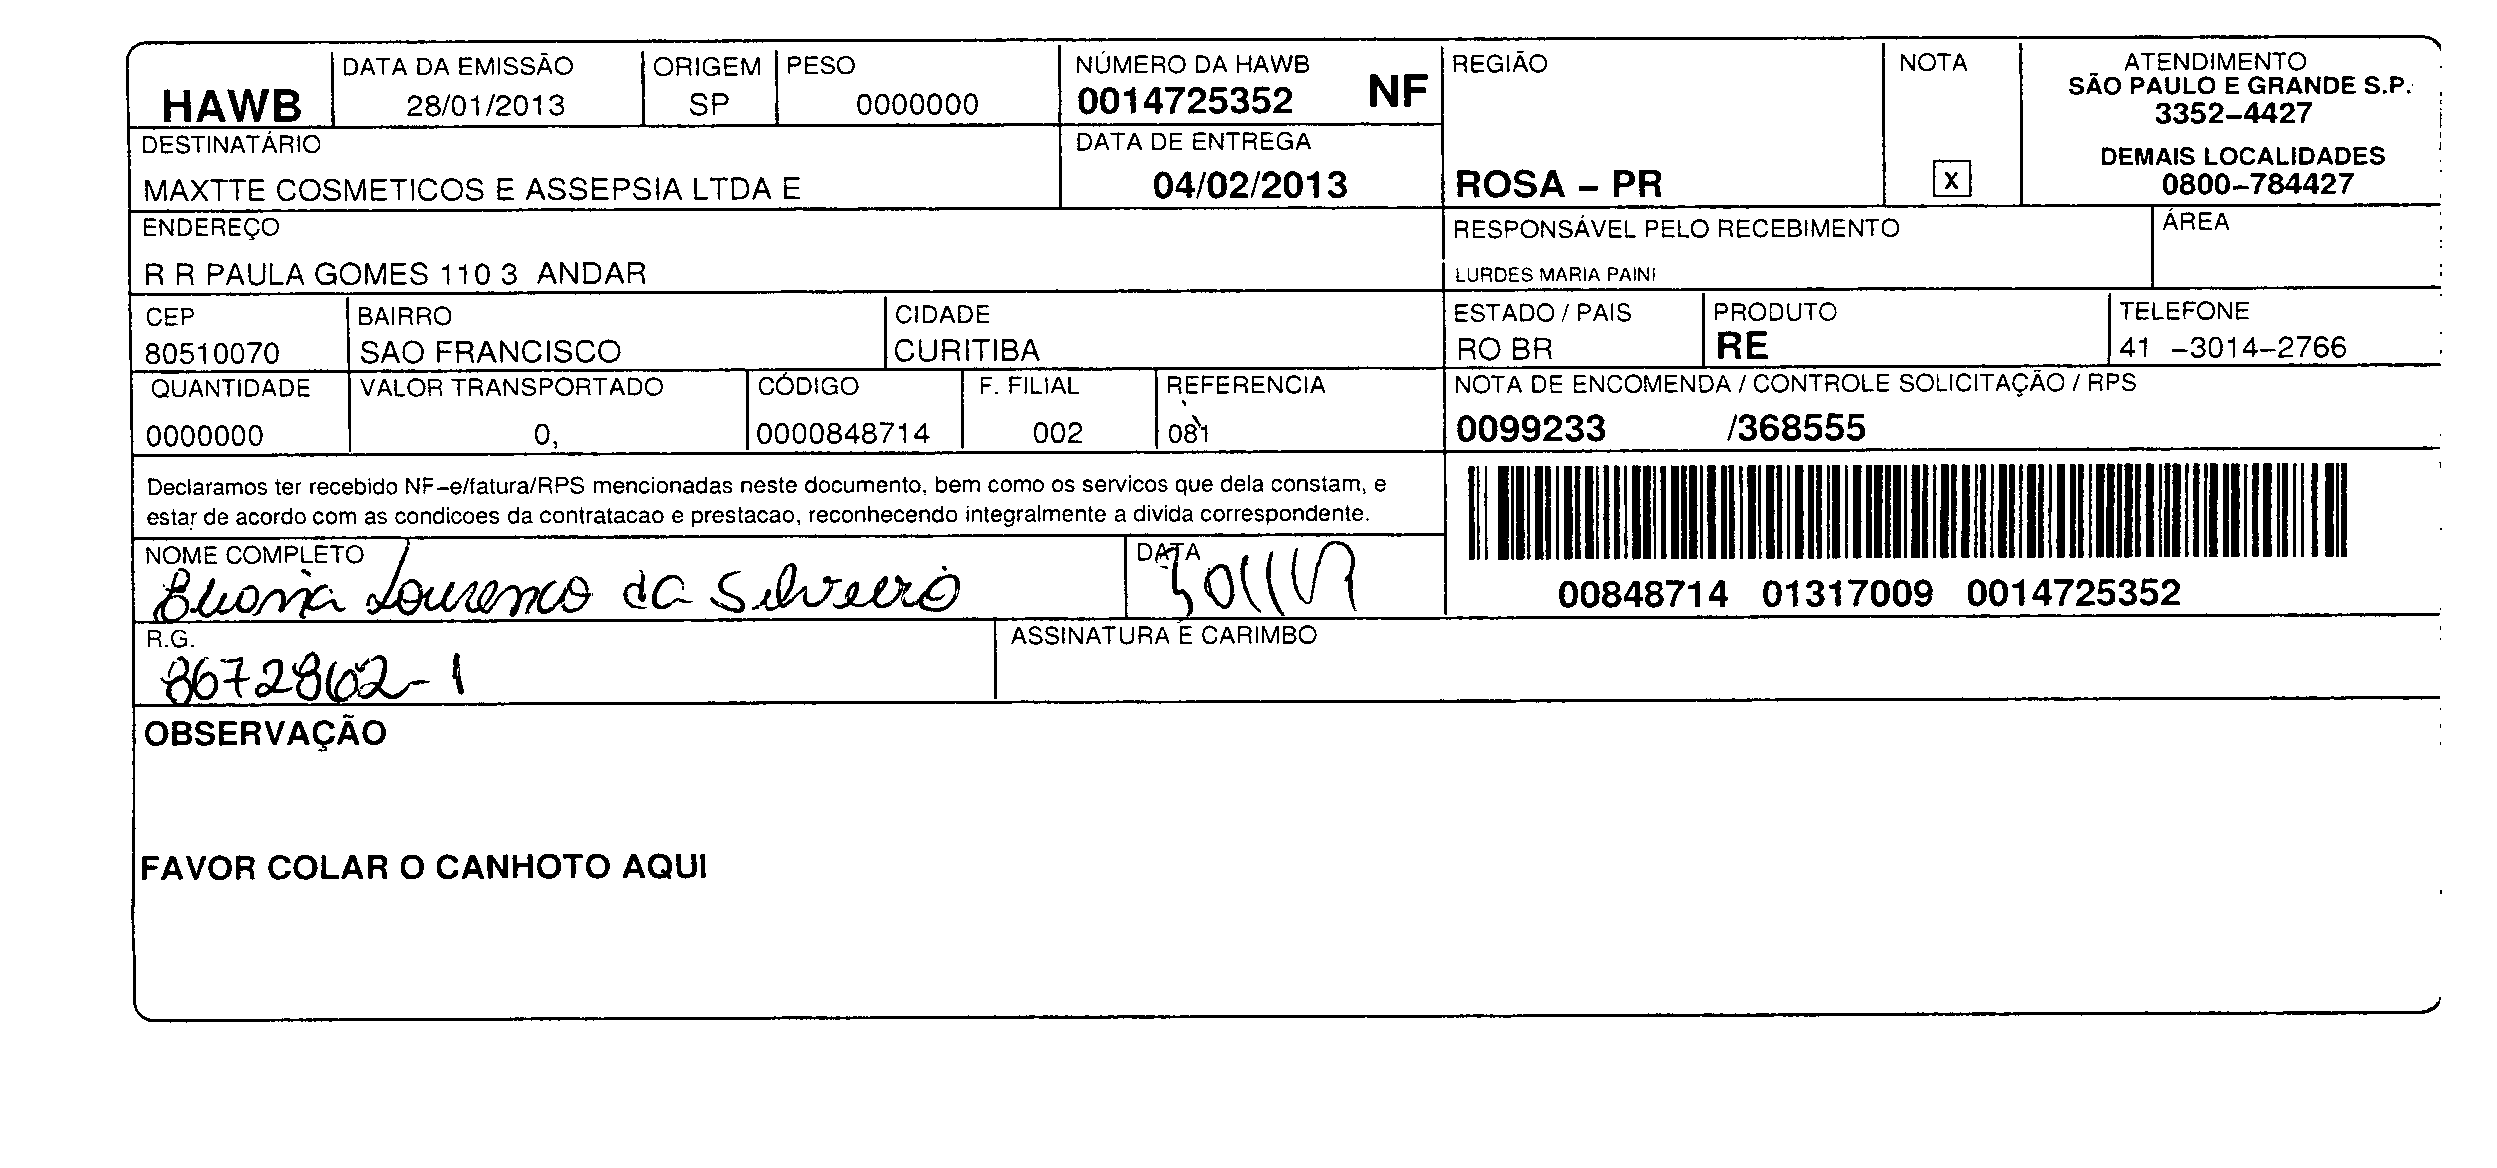 HAWB
DATA DA EMISSÃO
28/01/2013
ORIGEM
SP
PESO
0000000
NÚMERO DA HAWB
0014725352 NF
REGIÃO
ROSA – PR
NOTA
X
ATENDIMENTO
SÃO PAULO E GRANDE S.P.
3352–4427
DEMAIS LOCALIDADES
0800–784427
DESTINATÁRIO
MAXTTE COSMETICOS E ASSEPSIA LTDA E
DATA DE ENTREGA
04/02/2013
ENDEREÇO
R R PAULA GOMES 110 3 ANDAR
RESPONSÁVEL PELO RECEBIMENTO
LURDES MARIA PAINI
ÁREA
CEP
80510070
BAIRRO
SAO FRANCISCO
CIDADE
CURITIBA
ESTADO / PAIS
RO BR
PRODUTO
RE
TELEFONE
41 –3014–2766
QUANTIDADE
0000000
VALOR TRANSPORTADO
0,
CÓDIGO
0000848714
F. FILIAL
002
REFERENCIA
081
NOTA DE ENCOMENDA / CONTROLE SOLICITAÇÃO / RPS
0099233 /368555
Declaramos ter recebido NF–e/fatura/RPS mencionadas neste documento, bem como os servicos que dela constam, e
estar de acordo com as condicoes da contratacao e prestacao, reconhecendo integralmente a divida correspondente.
00848714 01317009 0014725352
NOME COMPLETO
Lourenco da Silveira
DATA
R.G.
8672862-1
ASSINATURA E CARIMBO
OBSERVAÇÃO
FAVOR COLAR O CANHOTO AQUI